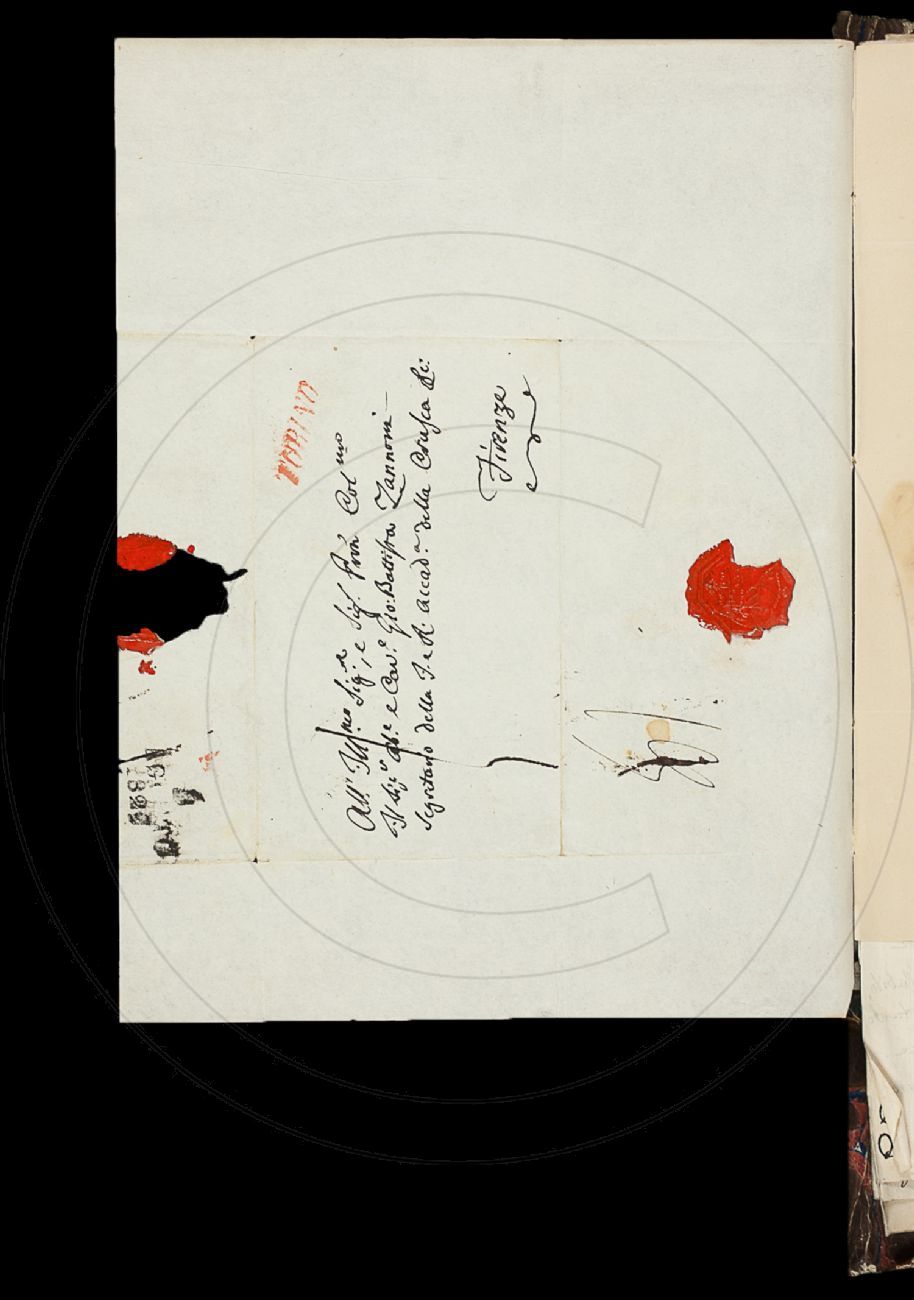 TORINO
All' Ill.mo Sig.re, e Sig. Prõn Col.mo
Il Sig.r Ab.e e Cav.e Gio: Battista Zannoni
Segretario della I. e R. Accad.a della Crusca &c:
Firenze